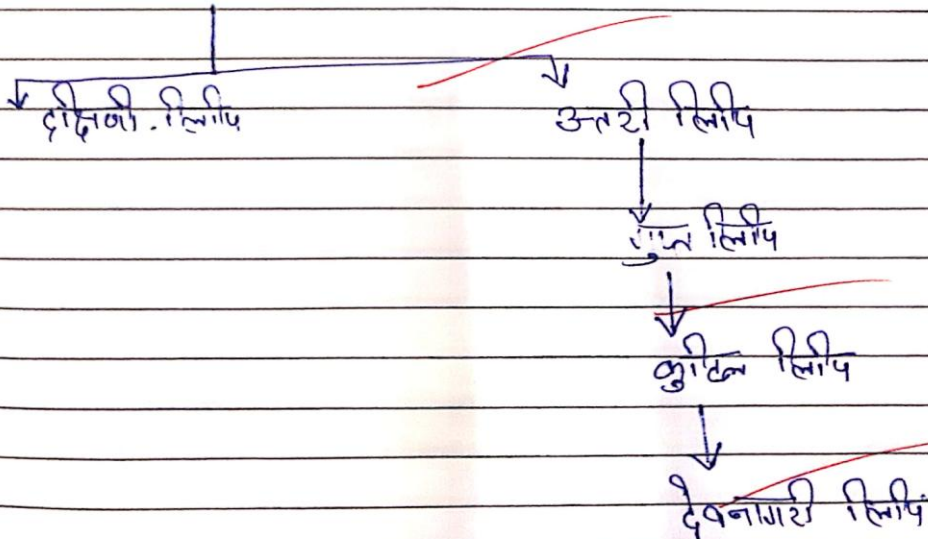 दक्षिणी लिपि उत्तरी लिपि
गुप्त लिपि
कुटिल लिपि
देवनागरी लिपि